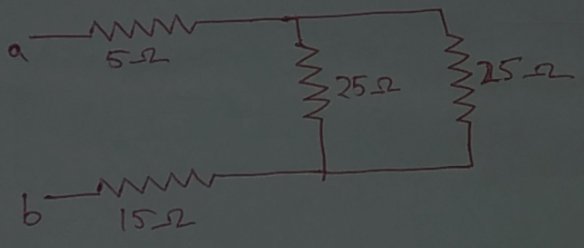 a
5Ω
25Ω
25Ω
b
15Ω